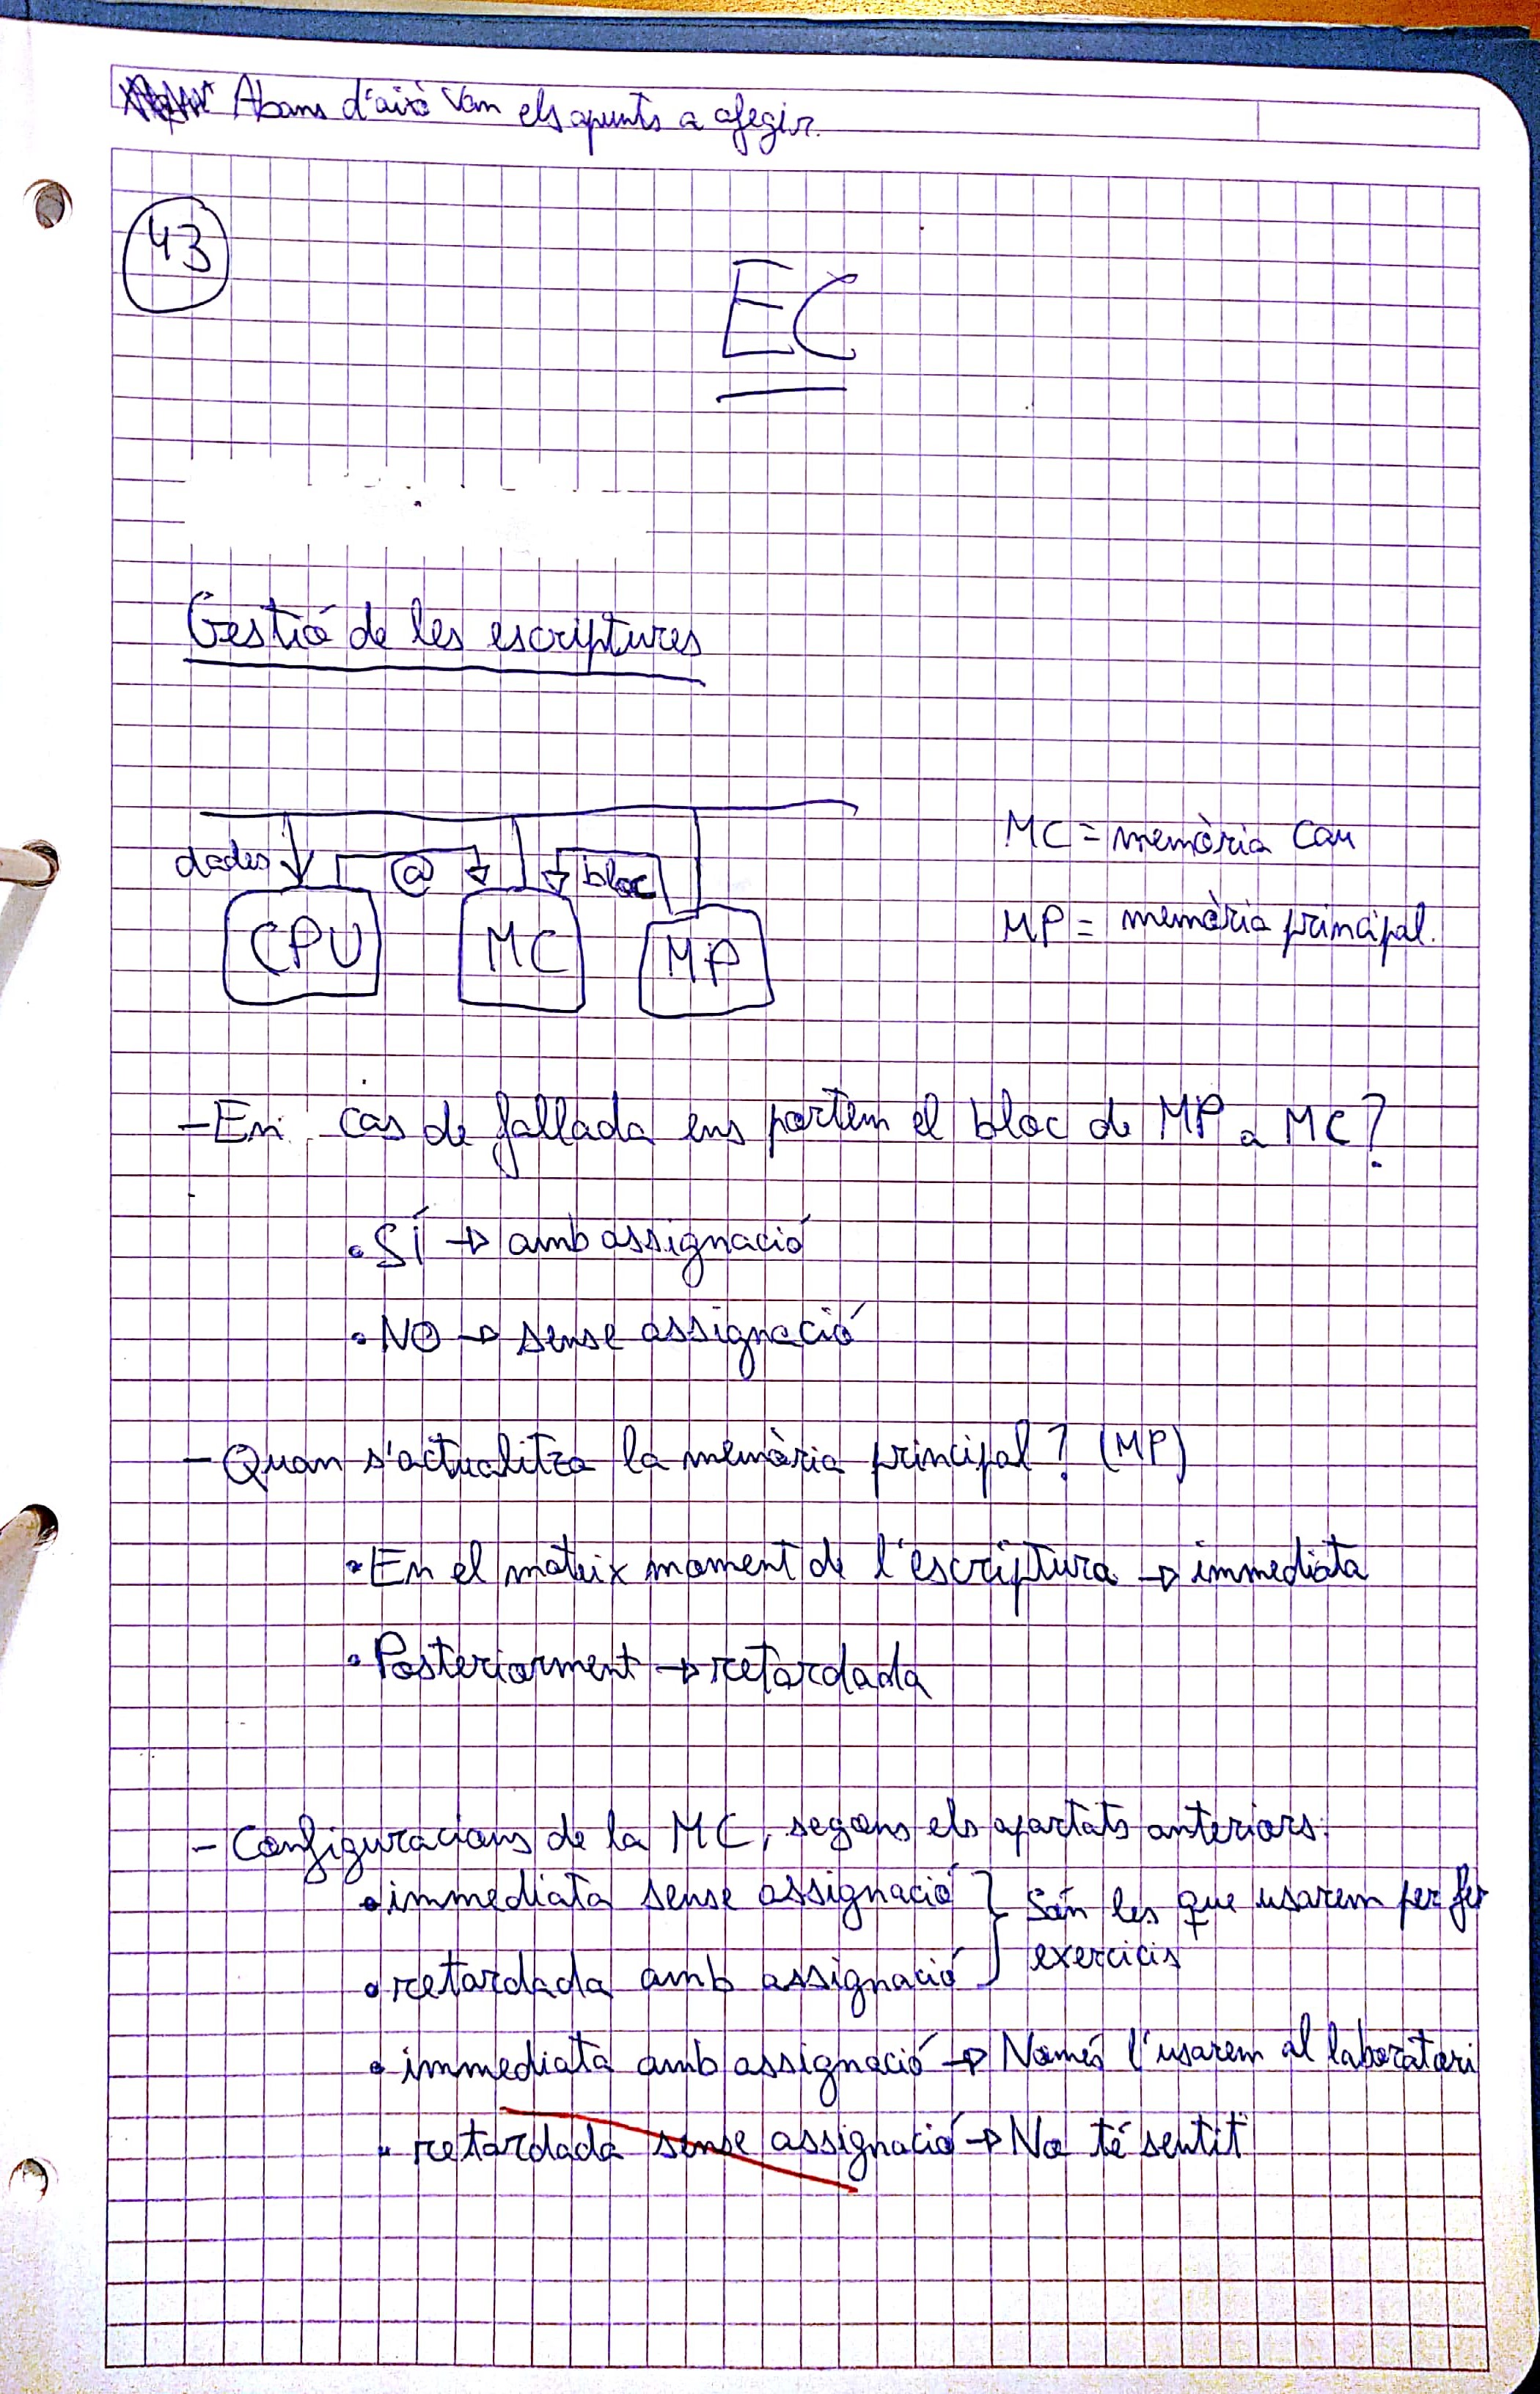 Abans d'això van els apunts a afegir.
43
EC
Gestió de les escriptures
dades @ bloc
CPU MC MP
MC = memòria Cau
MP = memòria principal.
- En cas de fallada ens portem el bloc de MP a MC?
• SÍ → amb assignació
• NO → sense assignació
- Quan s'actualitza la memòria principal? (MP)
• En el mateix moment de l'escriptura → immediata
• Posteriorment → retardada
- Configuracions de la MC, segons els apartats anteriors:
• immediata sense assignació } Són les que usarem per fer
• retardada amb assignació } exercicis
• immediata amb assignació → Només l'usarem al laboratori
• retardada sense assignació → No té sentit